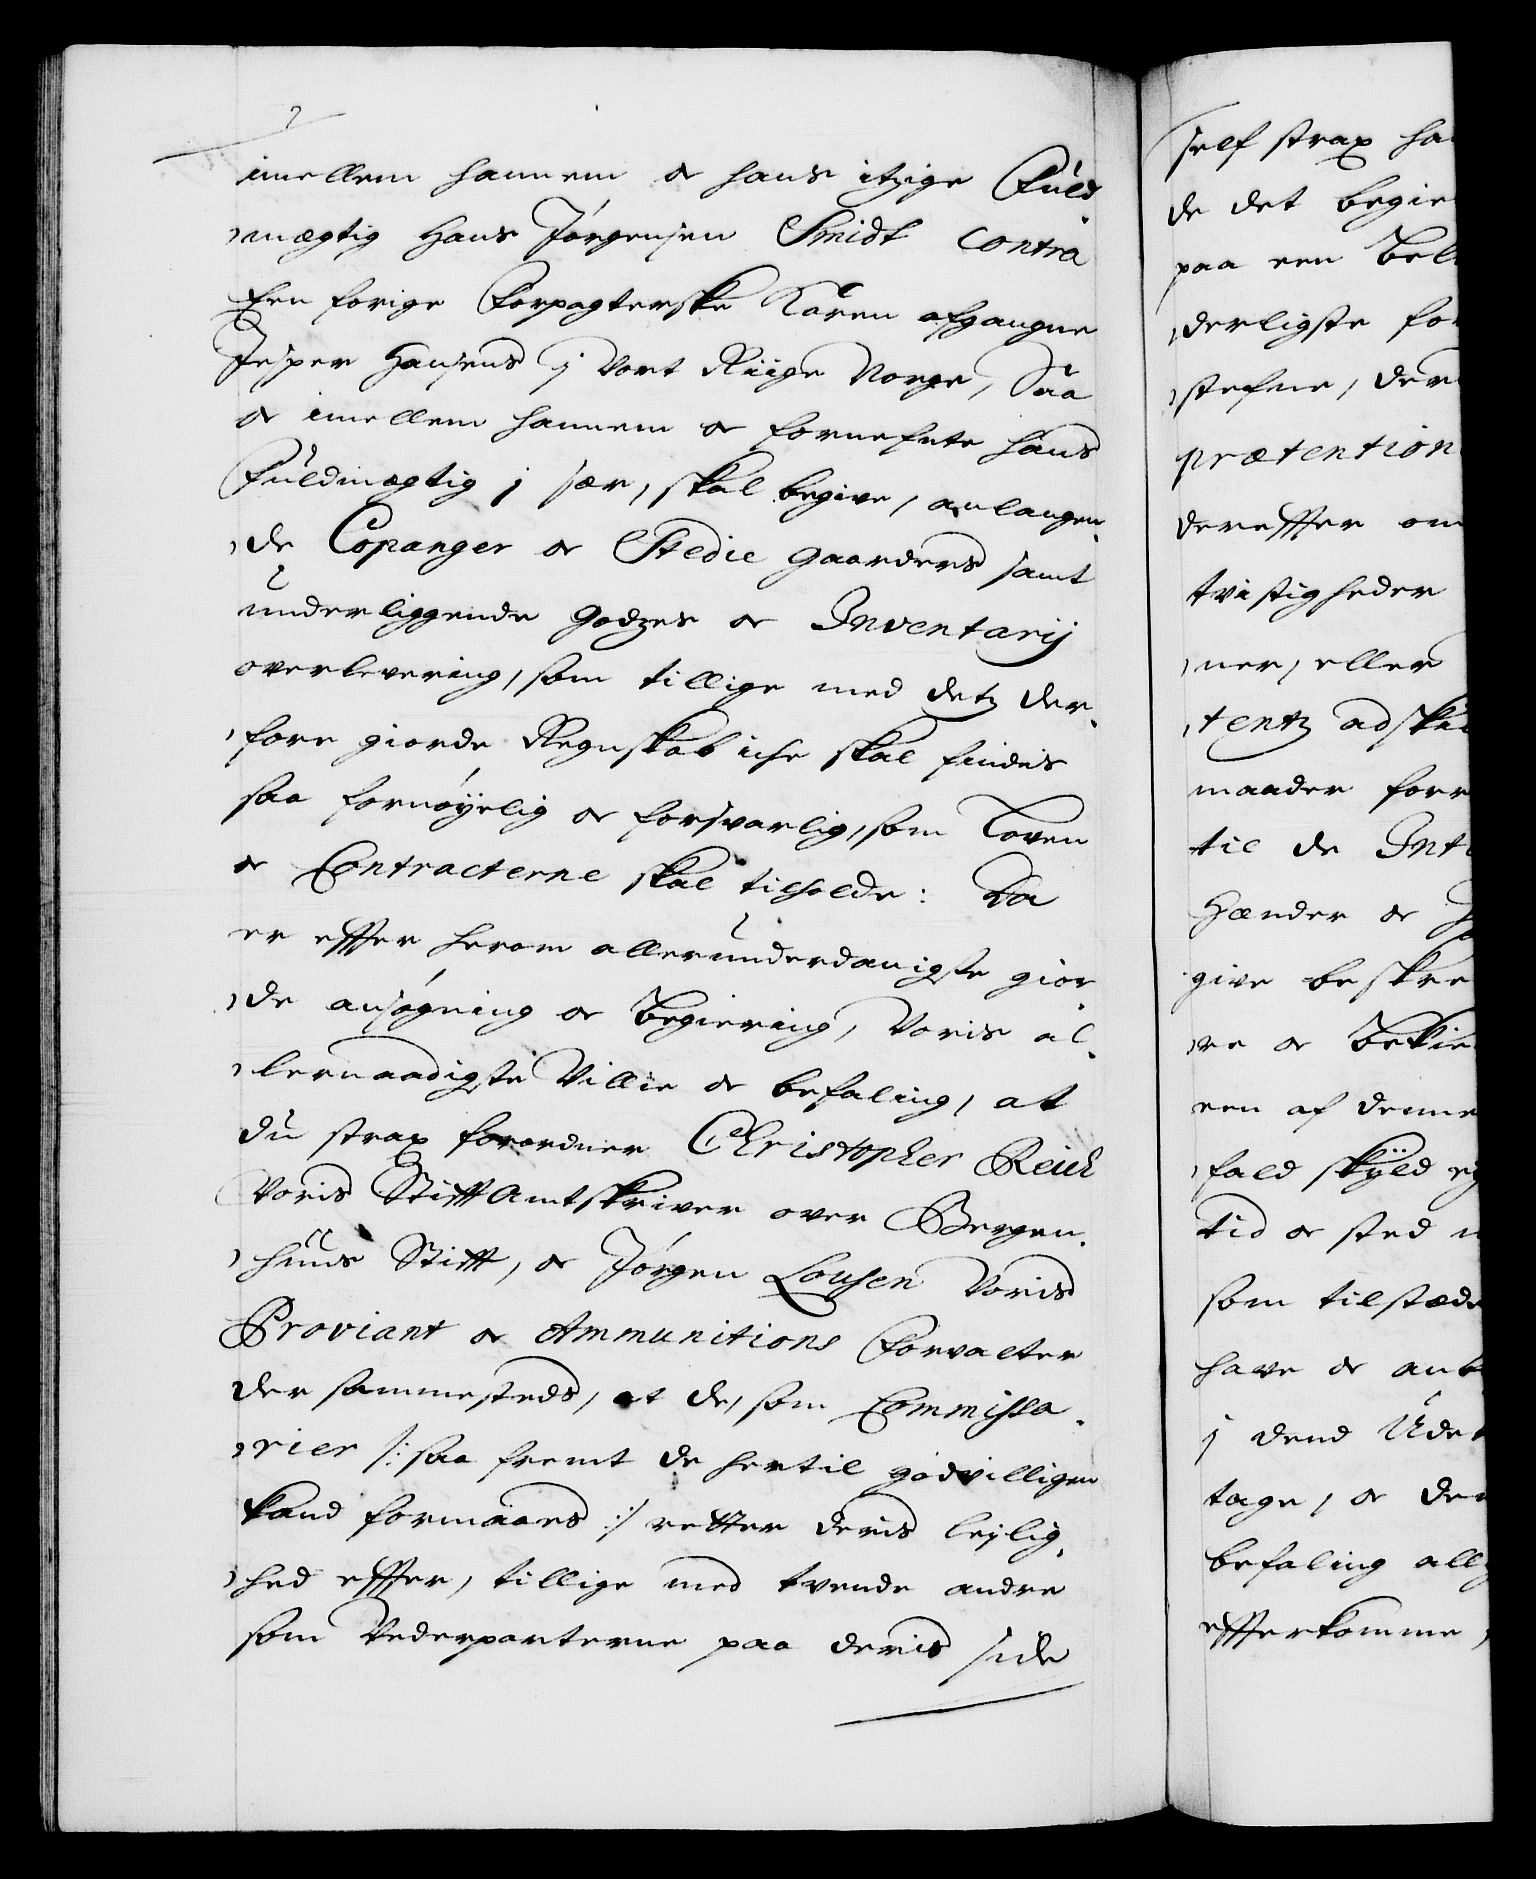 imellem hannem oc hans itzige Fuld-
mægtig Hans Jørgensen Smidt contra
Hen forige Forpagterske Karen afgangne
Jesper Hansens j Vort Riige Norge, Saa
oc imellem hannem oc fornefnte hans
Fuldmægtig j sær, skal begive, anlangen-
de Copanger oc Stedie Gaarders samt
underliggende Godzes oc Inventarij
overlevering, som tillige med detz der-
fore giorde Regnskab iche skal findes
saa fornøyelig oc forsvarlig, som Loven
oc Contracterne skal tilholde: Da
er effter herom allerunderdanigste gior
de ansøgning oc Begiering, Voris al-
lernaadigste Villie oc befaling, at
du strax forordner Christopher Reich
Voris StifftAmtskriver over Bergen-
huus Stifft, oc Jørgen Lousen Voris
Proviant oc Ammunitions Forvalter
der sammesteds, at de, som Commissa-
rier /: saa fremt de hertil godvilligen
kand formaaes :/ retter deris leylig-
hed effter, tillige med tvende andre
som Vederparterne paa deris side
self strax
de det
paa een
derligste
stefne,
prætention
dereffter om
tvistigheder
ner, eller
tentz
maader
til de
Hænder oc
give
re oc
een af denne
fald skyld
tid oc sted
som
have oc
j dend
tage, oc
befaling
effterkomme,